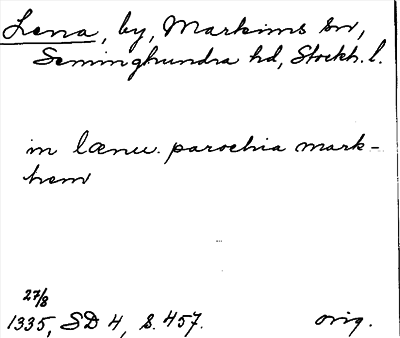 Lena, by, Markims sn,
Seminghundra hd, Stockh. l.
in lænu. parochia mark-
hem
27/8
1335, SD 4, s. 457. orig.